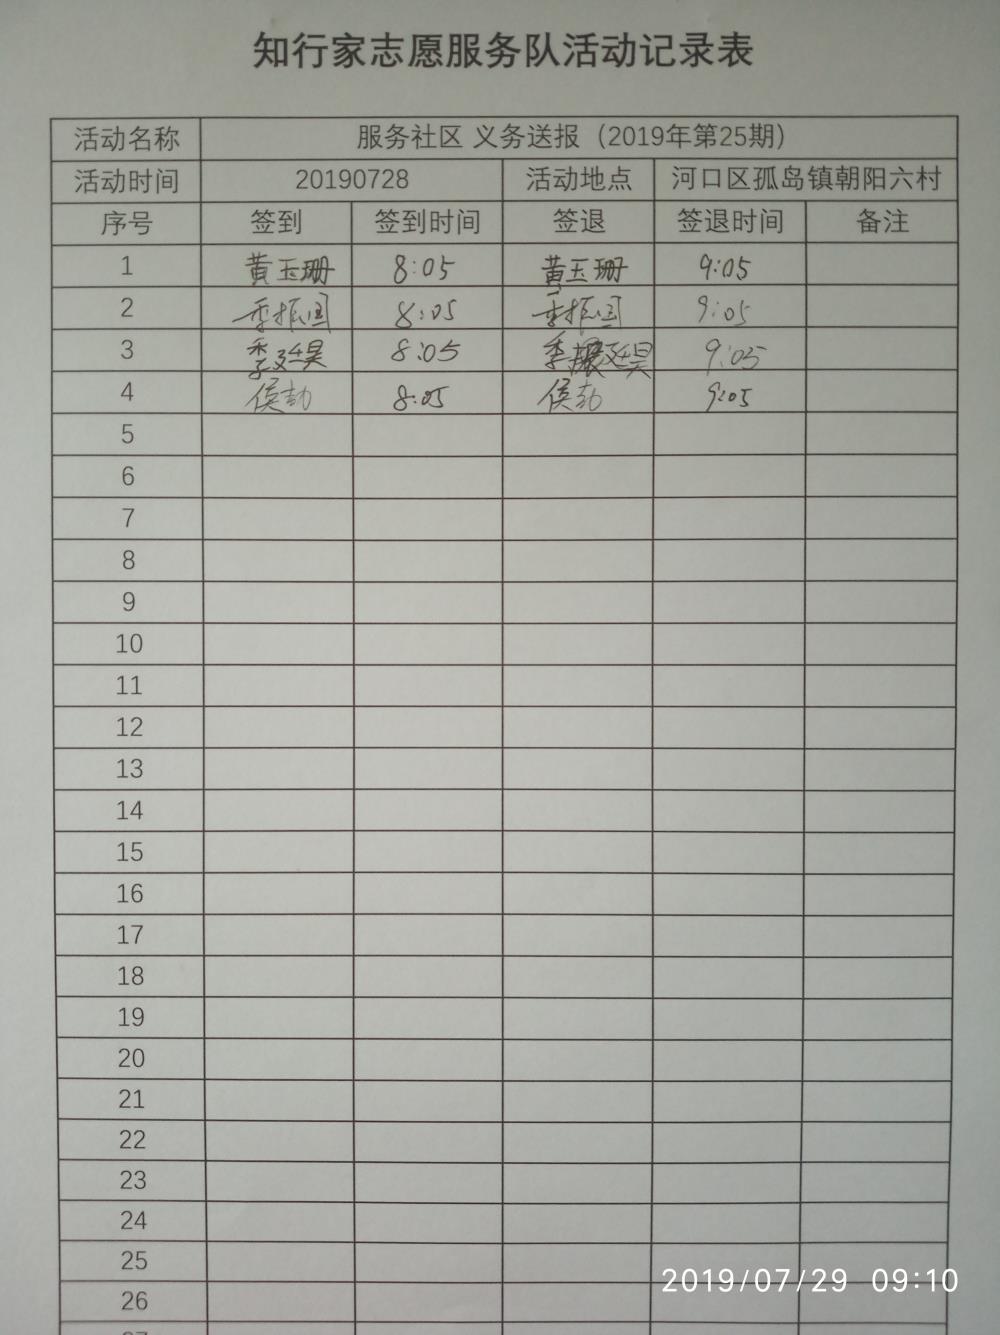 知行家志愿服务队活动记录表
活动名称 服务社区 义务送报（2019年第25期）
活动时间 20190728 活动地点 河口区孤岛镇朝阳六村
序号 签到 签到时间 签退 签退时间 备注
1 黄玉珊 8:05 黄玉珊 9:05
2 季振国 8:05 季振国 9:05
3 季廷昊 8:05 季廷昊 9:05
4 侯劼 8:05 侯劼 9:05
5
6
7
8
9
10
11
12
13
14
15
16
17
18
19
20
21
22
23
24
25
26
2019/07/29 09:10